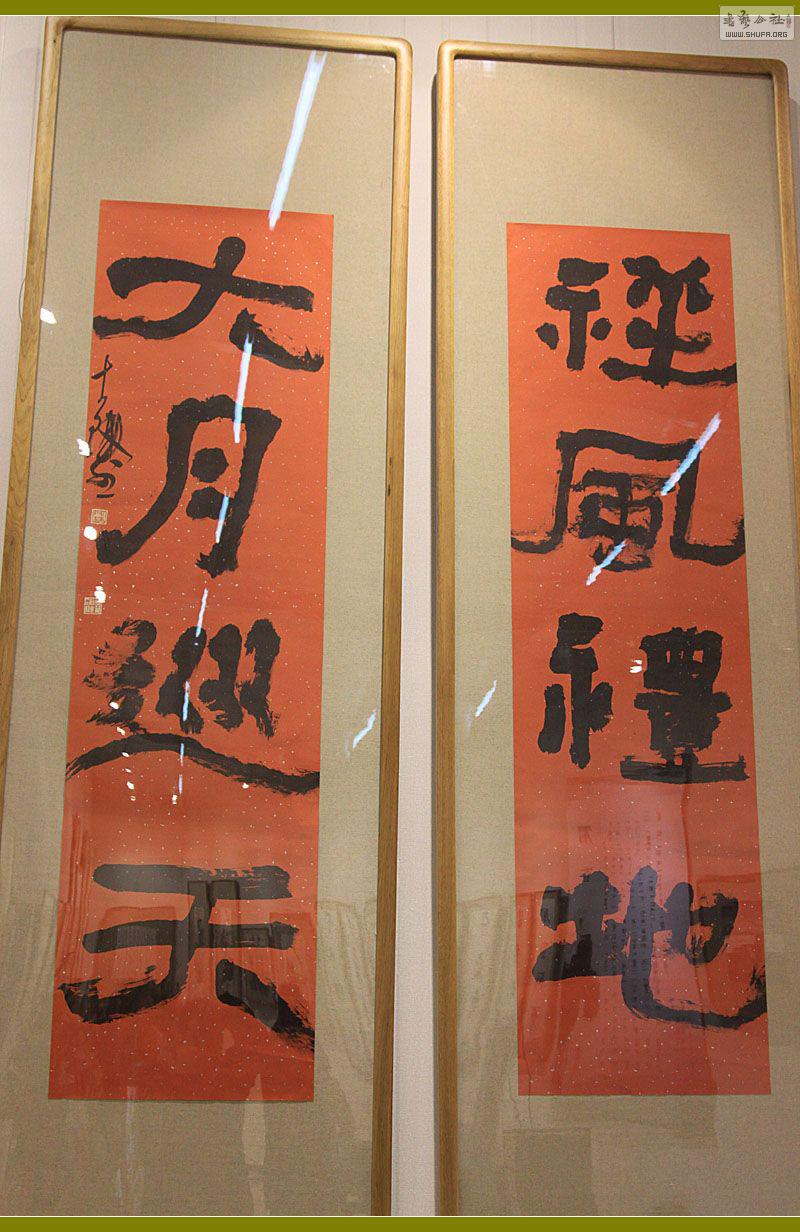 书艺公社
WWW.SHUFA.ORG
祥風禮地
大月巡天